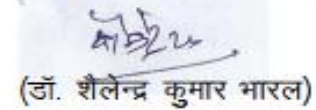 (डॉ. शैलेन्द्र कुमार भारल)